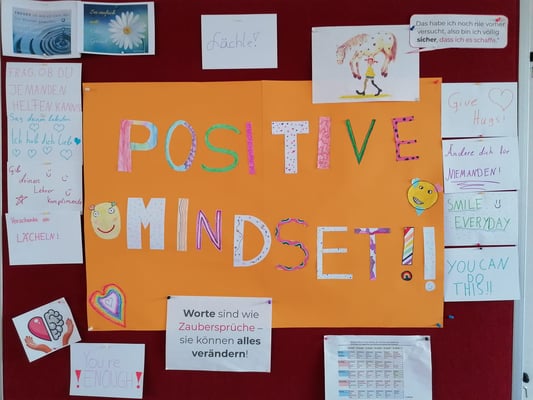 Lächle!
Das habe ich noch nie vorher
versucht, also bin ich völlig
sicher, dass ich es schaffe."
FRAG, OB DU
JEMANDEN
HELFEN KANNST
Sag deinen liebsten
Ich hab dich lieb
Gib
deinem
Lehrer
Komplimente
Verschenke ein
LÄCHELN!
POSITIVE
MINDSET!!
Give
Hugs!
Ändere dich für
NIEMANDEN!
SMILE
EVERYDAY
YOU CAN
DO
THIS!!
You're
!ENOUGH!
Worte sind wie
Zaubersprüche –
sie können alles
verändern!